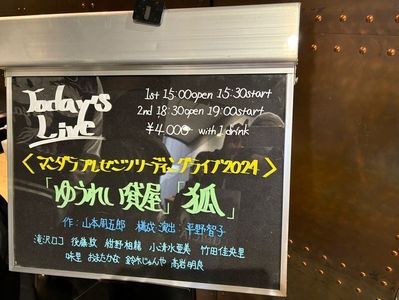 Today's
Live
1st 15:00open 15:30start
2nd 18:30open 19:00start
¥4,000 with 1 drink
〈マンダラプレゼンツリーディングライブ2024〉
「ゆうれい貸屋」「狐」
作:山本周五郎 構成・演出:平野智子
滝沢ロコ 後藤敦 紺野相龍 小清水亜美 竹田佳央里
味里 おまたかな 鈴木じゅんや 高岩明良